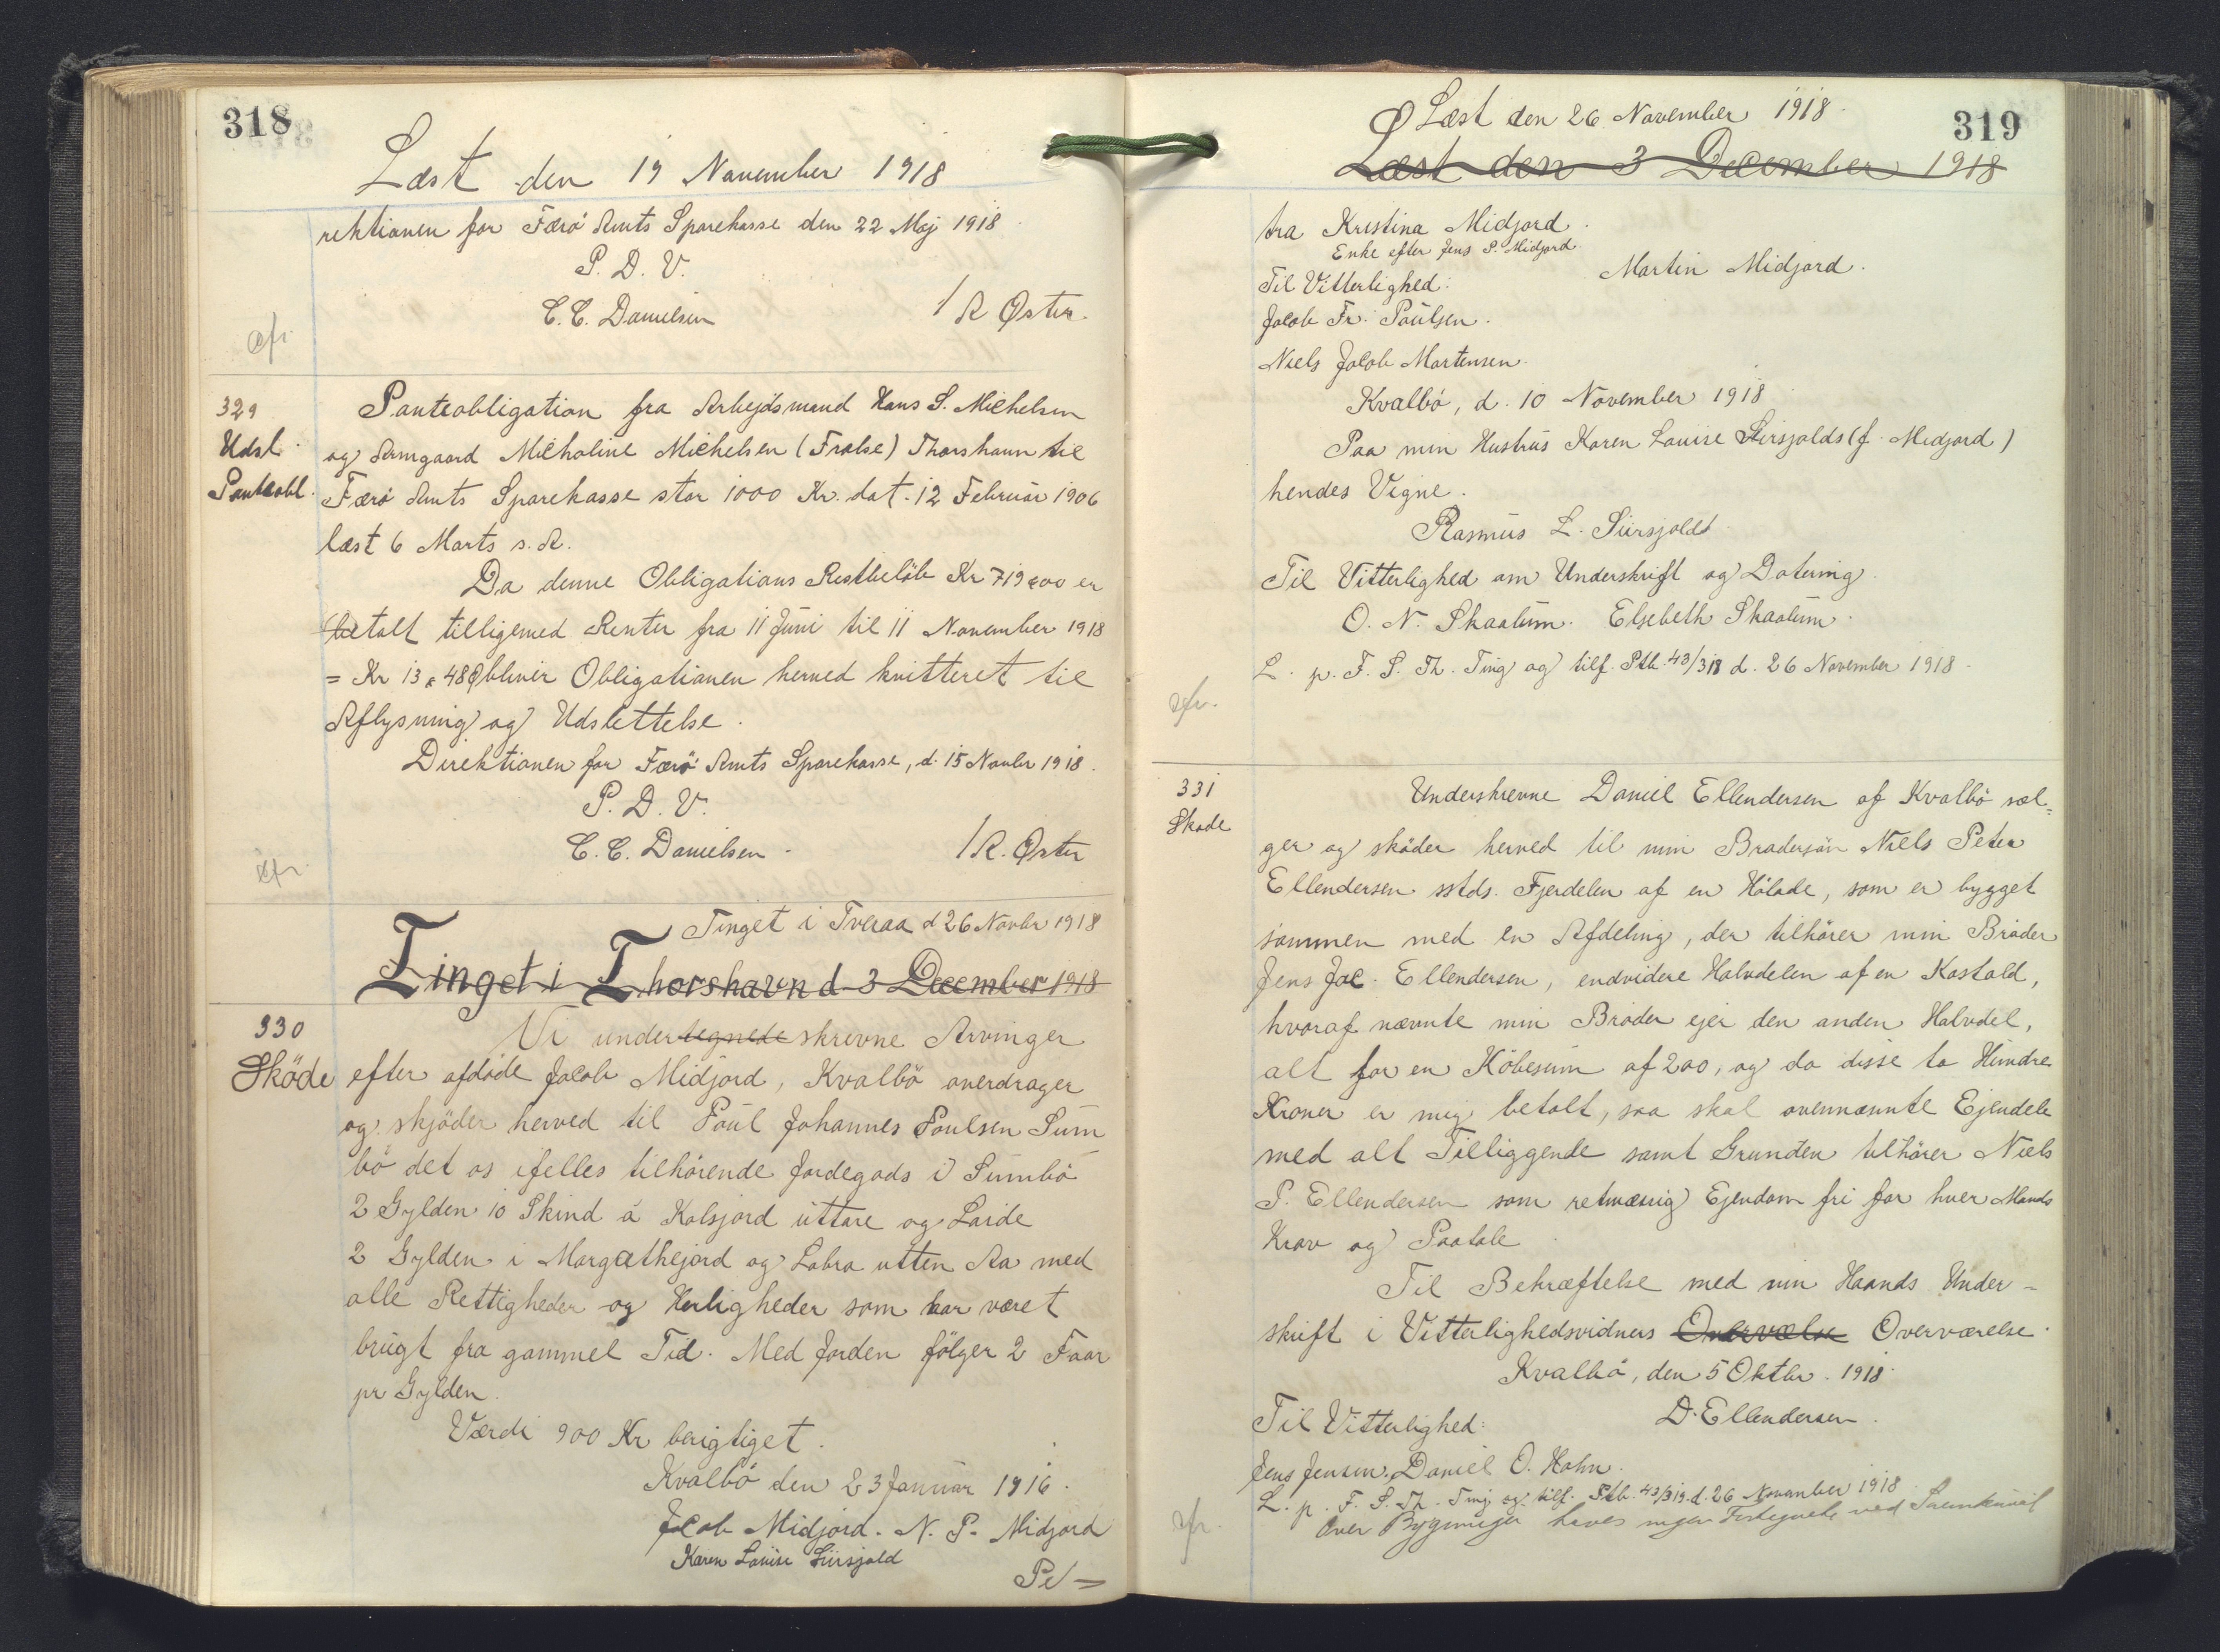 318
Læst den 19 November 1918
rektionen for Færö Amts Sparekasse den 22 Maj 1918
P. D. V.
C. C. Danielsen / R Øster.
329
Udsl.
Panteobl.
Panteobligation fra Arbejdsmand Hans S. Michelsen
og Armgaard Micholine Michelsen (Frælse) Thorshavn til
Færö Amts Sparekasse stor 1000 Kr. dat. 12 Februar 1906
læst 6 Marts s. A.
Da denne Obligations Restbelöb Kr 719 00 er
betalt tilligemed Renter fra 11 Juni til 11 November 1918
= Kr 13 48 Ø bliver Obligationen herved kvitteret til
Aflysning og Udslettelse.
Direktionen for Færö Amts Sparekasse, d. 15 Novbr 1918.
P. D. V.
C. C. Danielsen. / R. Øster
Tinget i Tveraa d 26 Novbr 1918
Tinget i Thorshavn d. 3 December 1918
330
Sköde
Vi undertegnede skrevne Arvinger
efter afdöde Jacob Midjord, Kvalbö overdrager
og skjöder herved til Poul Johannes Poulsen Sum
bö det os ifelles tilhörende Jordegods i Sumbö
2 Gylden 10 Skind á Kolsjord uttare og Laide
2 Gylden i Margrethejord og Labra utten Aa med
alle Rettigheder og Herligheder som har været
brugt fra gammel Tid. Med Jorden fölger 2 Faar
pr Gylden.
Værdi 900 Kr berigtiget.
Kvalbö den 23 Januar 1916.
Jacob Midjord. N. P. Midjord
Karen Louise Siirsjald
Pe/=
319
Læst den 26 November 1918
Læst den 3 December 1918
tra Kristina Midjord.
Enke efter Jens P. Midjord.
Martin Midjord.
Til Vitterlighed:
Jacob Fr. Poulsen.
Niels Jacob Mortensen.
Kvalbö, d. 10 November 1918
Paa min Hustrus Karen Louise Siirsjalds (f. Midjord)
hendes Vegne.
Rasmus L. Siirsjaldt.
Til Vitterlighed om Underskrift og Datering.
O. N. Skaalum. Elsebeth Skaalum.
L. p. F. S. Th. Ting og tilf. Ptb. 43/318 d. 26 November 1918.
331
Skøde
Underskrevne Daniel Ellendersen af Kvalbö sæl=
ger og sköder herved til min Brodersön Niels Peter
Ellendersen sstds. Fjerdelen af en Hölade, som er bygget
sammen med en Afdeling, der tilhörer min Broder
Jens Jac. Ellendersen, endvidere Halvdelen af en Kostald,
hvoraf nævnte min Broder ejer den anden Halvdel,
alt for en Köbesum af 200, og da disse to Hundre
Kroner er mig betalt, saa skal ovennævnte Ejendele
med alt Tilliggende samt Grunden tilhörer Niels
P. Ellendersen som retmæssig Ejendom fri for hver Mands
Krav og Paatale.
Til Bekræftelse med min Haands Under-
skrift i Vitterlighedsvidners Overvælse Overværelse.
Kvalbö, den 5 Oktbr. 1918.
D. Ellendersen.
Til Vitterlighed:
Jens Jensen. Daniel O. Holm.
L. p. F. S. Th. Ting og tilf. Ptb. 43/319. d. 26 November 1918
Over Bygninger haves ingen